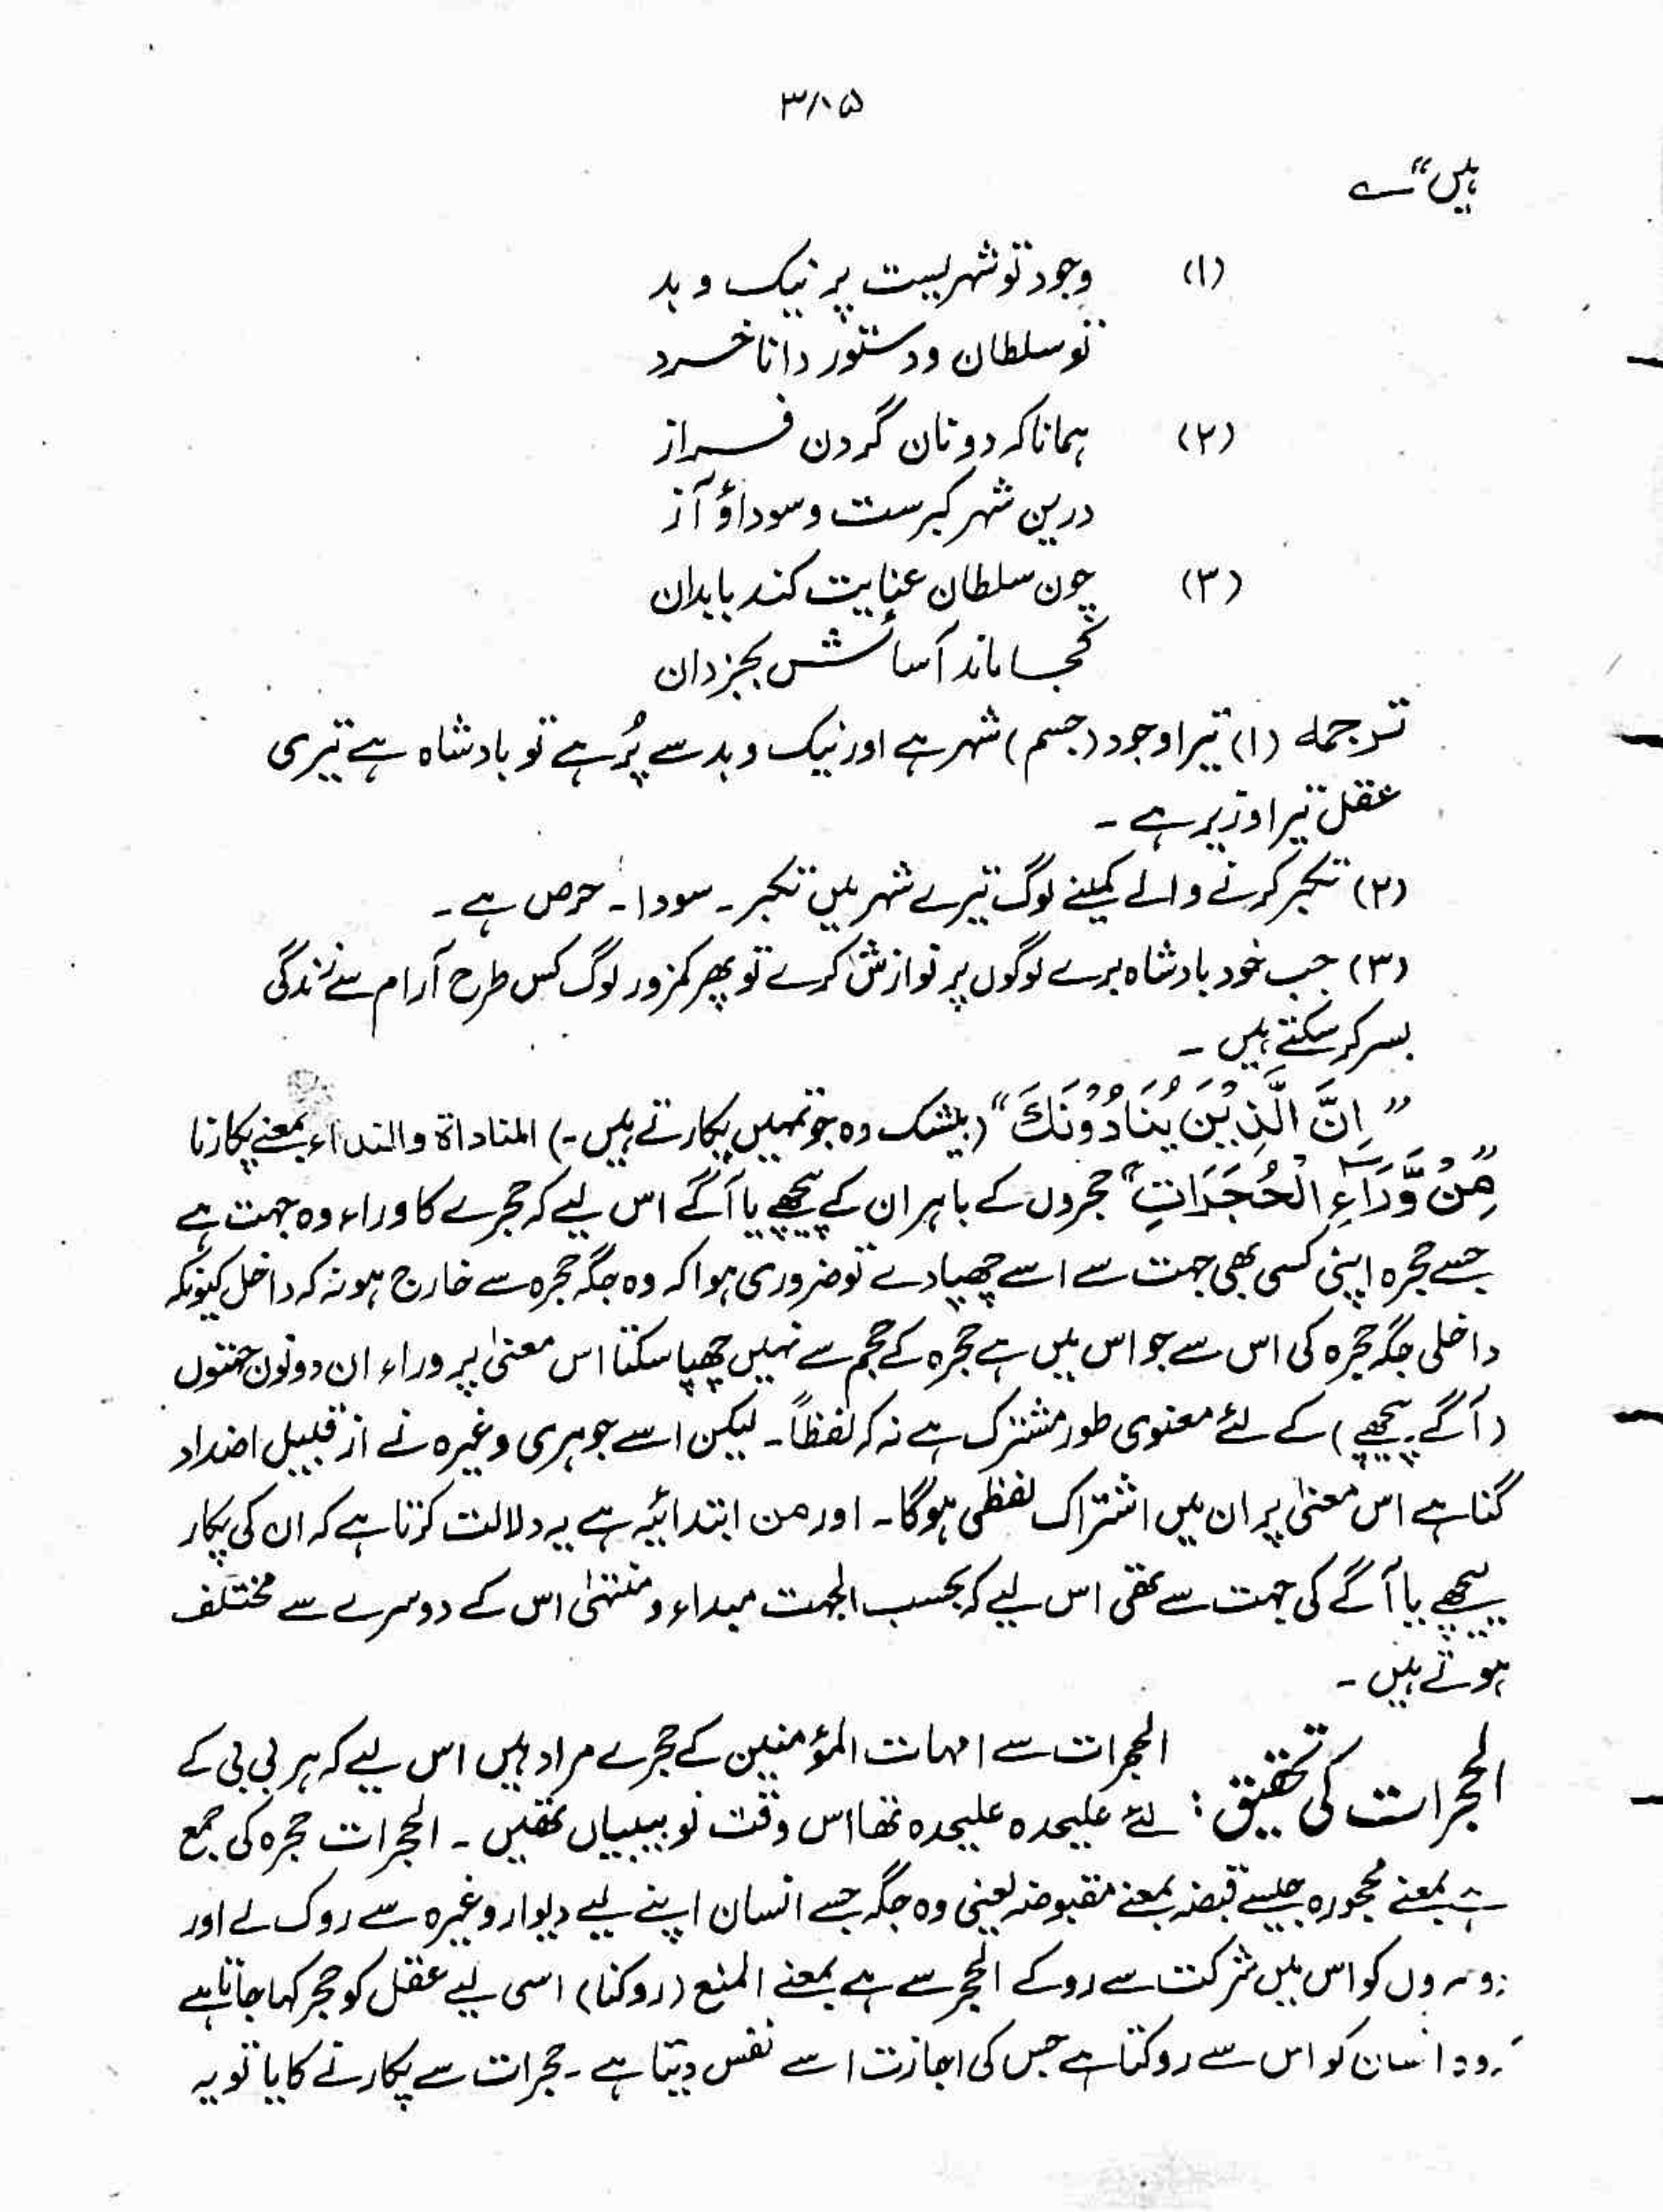 ۳۸۵
ہیں“ ؎
(۱) وجود تو شہریست پر نیک و بد
تو سلطان و دستور دانا خرد
(۲) ہمانا کہ دونان گردن فراز
درین شہر کبرست و سوداؤ آز
(۳) چون سلطان عنایت کند بابدان
کجا ماند آسائش بخردان
ترجمہ (۱) تیرا وجود (جسم) شہر ہے اور نیک و بد سے پُر ہے تو بادشاہ ہے تیری
عقل تیرا وزیر ہے ۔
(۲) تکبر کرنے والے کمینے لوگ تیرے شہر میں تکبر ۔ سودا ۔ حرص ہے ۔
(۳) جب خود بادشاہ برے لوگوں پر نوازش کرے تو پھر کمزور لوگ کس طرح آرام سے زندگی
بسر کر سکتے ہیں ۔
” اِنَّ الَّذِیْنَ یُنَادُوْنَكَ “ (بیشک وہ جو تمہیں پکارتے ہیں ۔) المناداۃ والنداء بمعنے پکارنا
” مِنْ وَّرَآءِ الْحُجُرَاتِ “ حجروں کے باہر ان کے پیچھے یا آگے اس لیے کہ حجرے کا وراء وہ جہت ہے
جسے حجرہ اپنی کسی بھی جہت سے اسے چھپا دے تو ضروری ہوا کہ وہ جگہ حجرہ سے خارج ہو نہ کہ داخل کیونکہ
داخلی جگہ حجرہ کی اس سے جو اس میں ہے حجرہ کے حجم سے نہیں چھپا سکتا اس معنیٰ پر وراء ان دونوں جہتوں
(آگے پیچھے) کے لئے معنوی طور مشترک ہے نہ کہ لفظاً ۔ لیکن اسے جوہری وغیرہ نے از قبیل اضداد
گنا ہے اس معنیٰ پر ان میں اشتراک لفظی ہوگا ۔ اور من ابتدائیہ ہے یہ دلالت کرتا ہے کہ ان کی پکار
پیچھے یا آگے کی جہت سے تھی اس لیے کہ بحسب الجہت مبداء و منتہیٰ اس کے دوسرے سے مختلف
ہوتے ہیں ۔
الحجرات کی تحقیق : الحجرات سے امہات المؤمنین کے حجرے مراد ہیں اس لیے کہ ہر بی بی کے
لئے علیحدہ علیحدہ تھا اس وقت نو بیبیاں تھیں ۔ الحجرات حجرہ کی جمع
ہے بمعنے محجورہ جیسے قبضہ بمعنے مقبوضہ یعنی وہ جگہ جسے انسان اپنے لیے دیوار وغیرہ سے روک لے اور
دوسروں کو اس میں شرکت سے روکے الحجر سے ہے بمعنے المنع (روکنا) اسی لیے عقل کو حجر کہا جاتا ہے
انسان کو اس سے روکتا ہے جس کی اجازت اسے نفس دیتا ہے ۔ حجرات سے پکارنے کا یا تو یہ